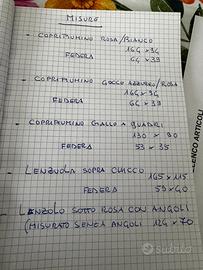 MISURE
- COPRIPIUMINO ROSA/BIANCO
164 x 94
FEDERA 64 x 39
- COPRIPIUMINO GOCCE AZZURRO/ROSA
164 x 94
FEDERA 64 x 39
- COPRIPIUMINO GIALLO A QUADRI
130 x 90
FEDERA 53 x 35
- LENZUOLA SOPRA CHICCO
165 x 115
FEDERA 59 x 40
- LENZUOLO SOTTO ROSA CON ANGOLI
(MISURATO SENZA ANGOLI 124 x 70
ELENCO ARTICOLI
subito